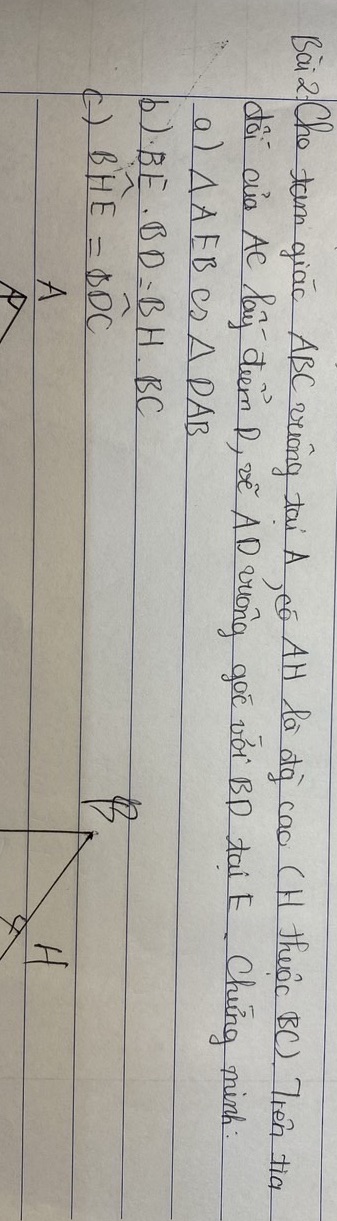 Bài 2: Cho tam giác ABC vuông tại A, có AH là đg cao (H thuộc BC). Trên tia
đối của AC lấy điểm D, vẽ AD vuông góc với BD tại E. Chứng minh:
a) Δ AEB ∽ Δ DAB
b) BE . BD = BH . BC
c) BĤE = BD̂C
A
B
H